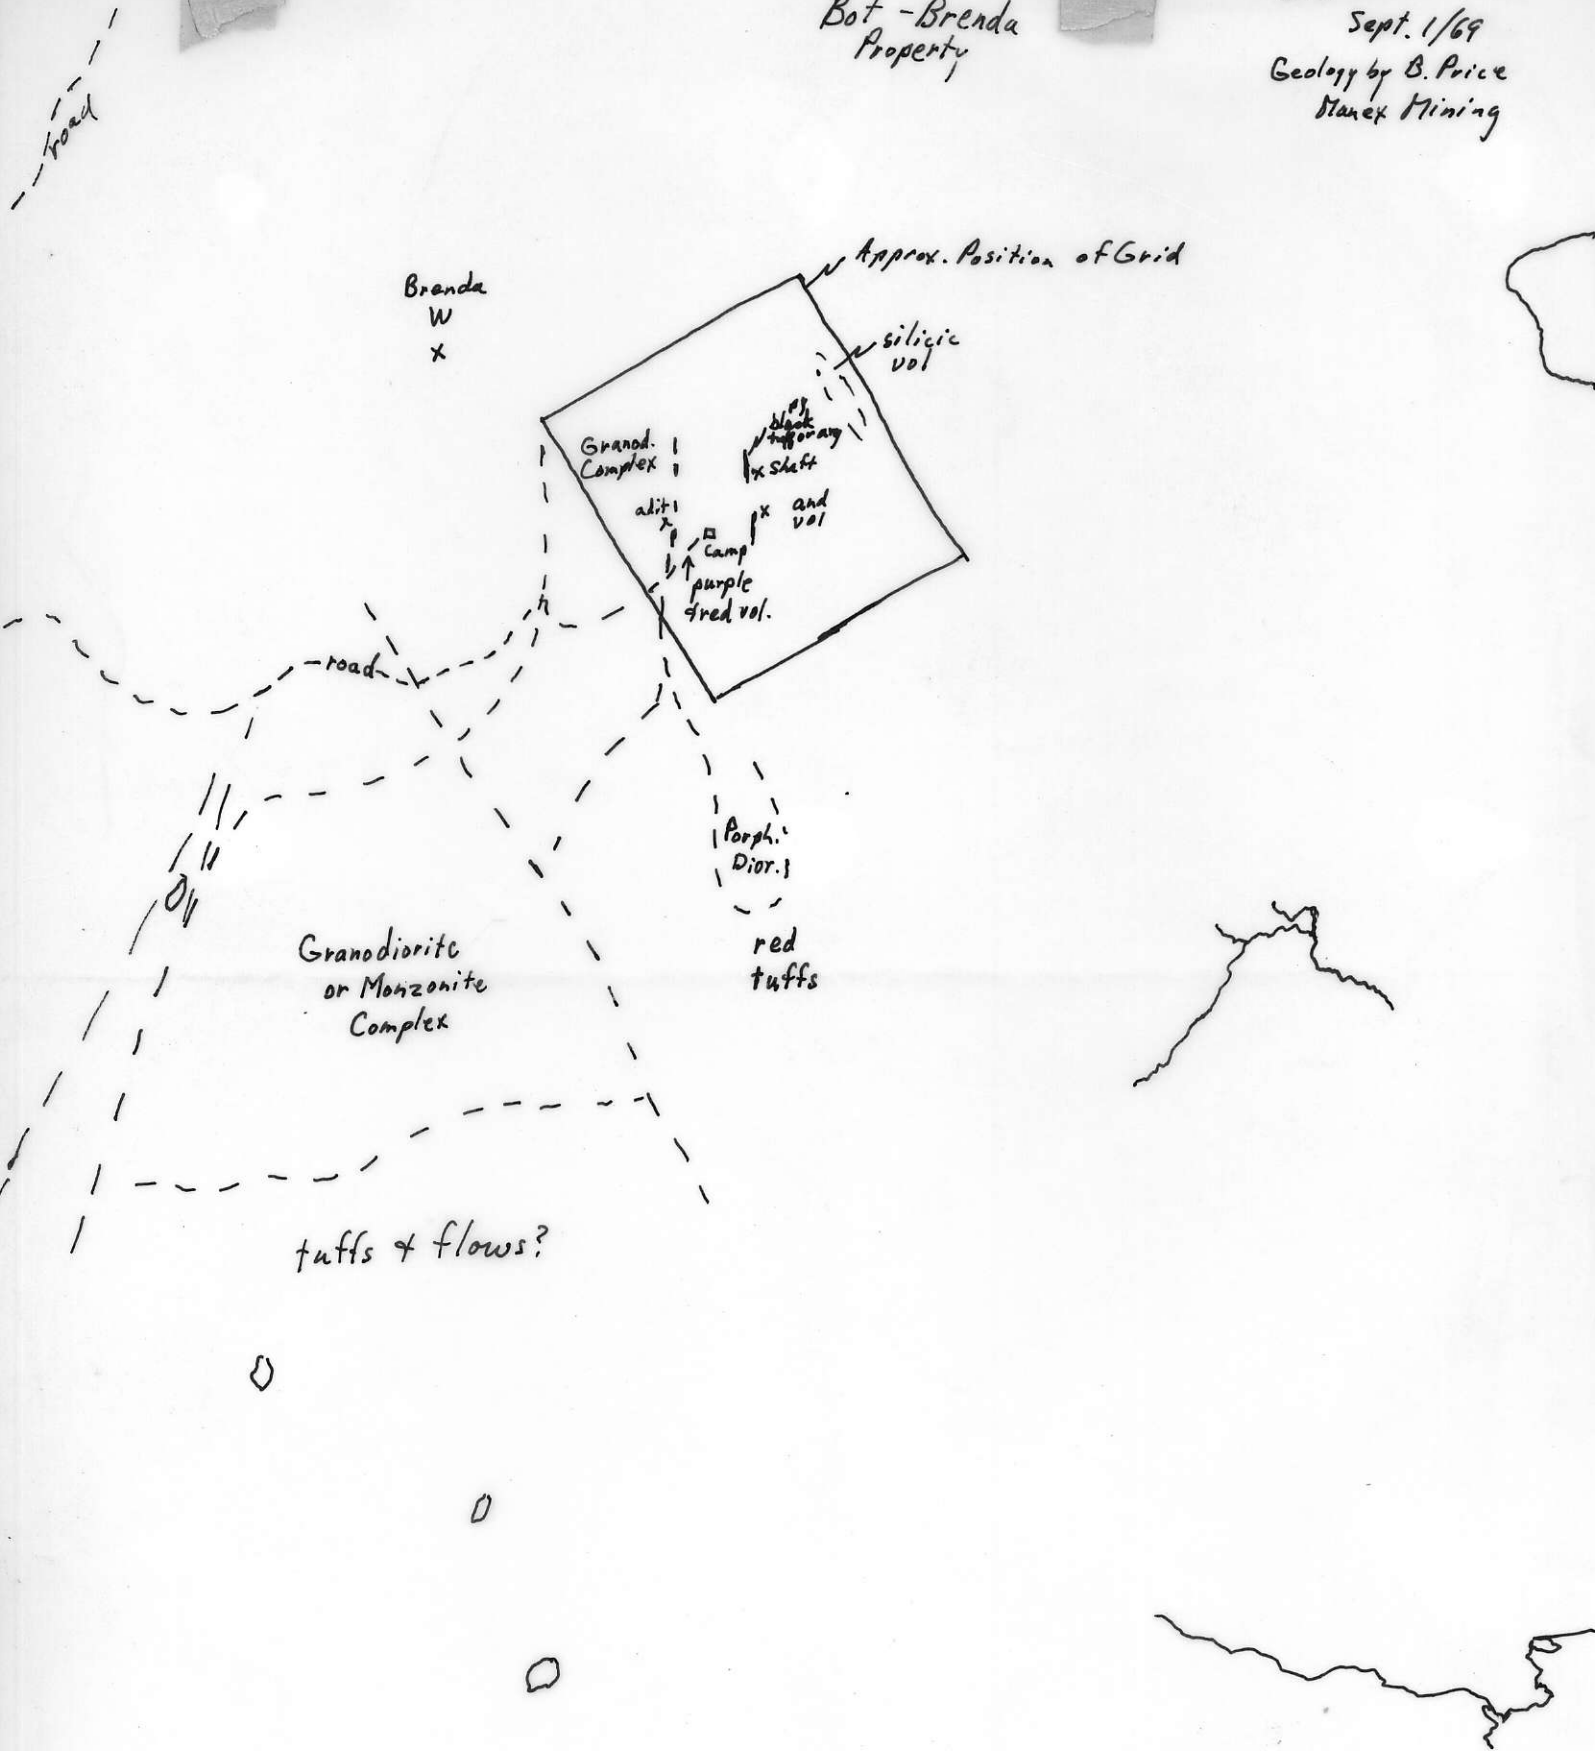 Bot - Brenda
Property
Sept. 1/69
Geology by B. Price
Manex Mining
road
Approx. Position of Grid
Brenda
W
x
silicic
vol
black
Granod.
Complex
x shaft
adit
x
x and
vol
Camp
purple
& red vol.
road
Porph.
Dior.
red
tuffs
Granodiorite
or Monzonite
Complex
tuffs & flows?